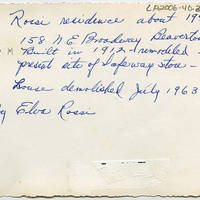 LA2006-40-2
Rossi residence about 19
158 N E Broadway Beaverto
Built in 1912 - remodeled -
present site of Safeway store -
House demolished July 1963
by Elva Rossi